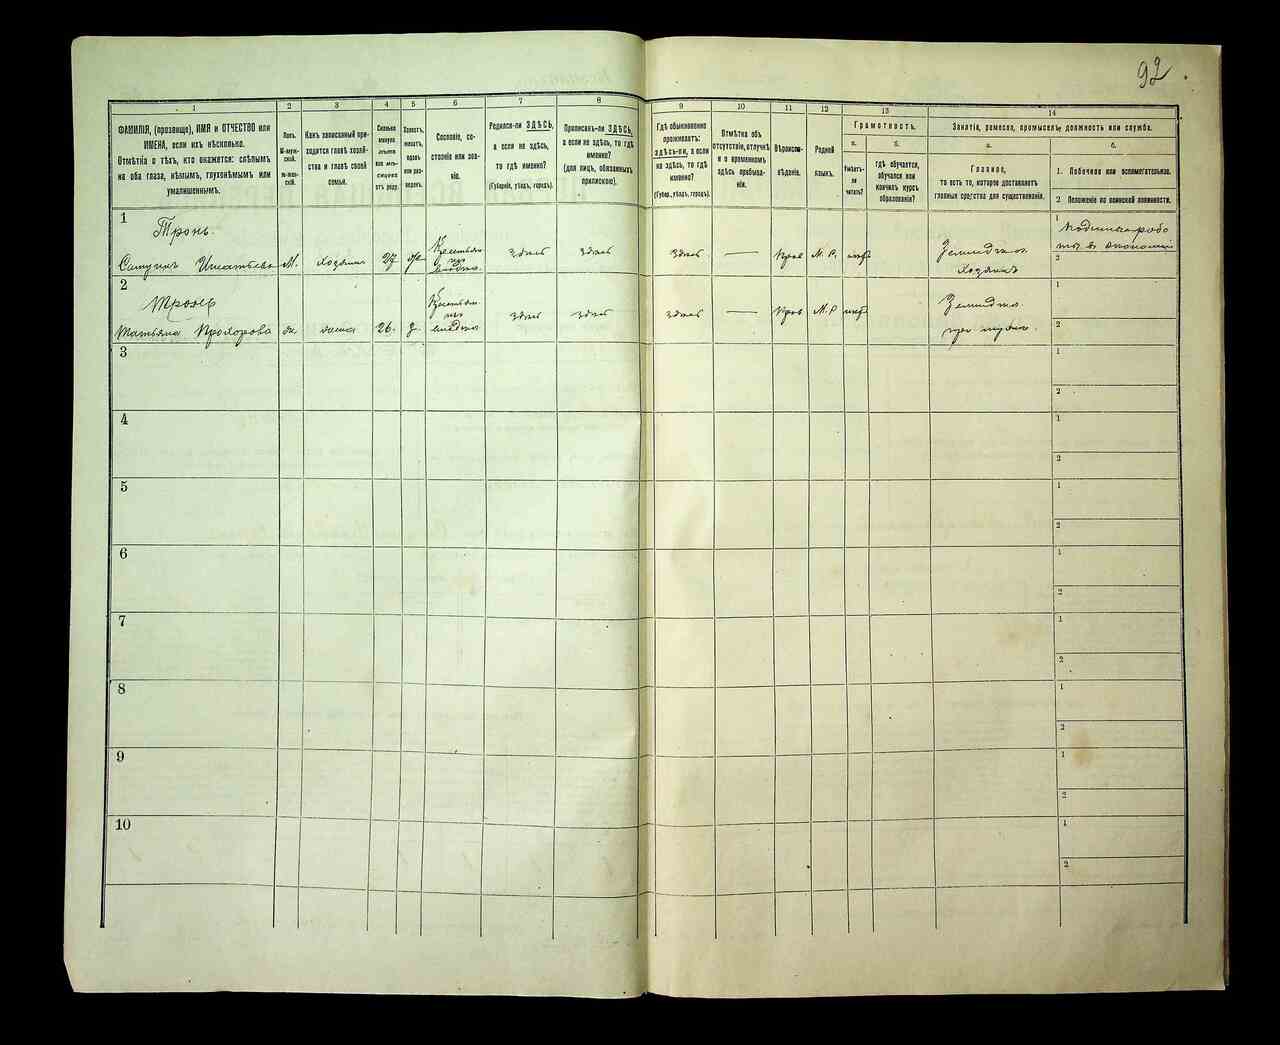 92
1
2
3
4
5
6
7
8
9
10
11
12
13
14
ФАМИЛІЯ, (прозвище), ИМЯ и ОТЧЕСТВО или
ИМЕНА, если ихъ нѣсколько.
Отмѣтка о тѣхъ, кто окажется: слѣпымъ
на оба глаза, нѣмымъ, глухонѣмымъ или
умалишеннымъ.
Полъ.
М-муж-
ской.
Ж-жен-
скій.
Какъ записанный при-
ходится главѣ хозяй-
ства и главѣ своей
семьи.
Сколько
минуло
лѣтъ
или мѣ-
сяцевъ
отъ роду.
Холостъ,
женатъ,
вдовъ
или раз-
веденъ.
Сословіе, со-
стояніе или зва-
ніе.
Родился-ли ЗДѢСЬ,
а если не здѣсь,
то гдѣ именно?
(Губернія, уѣздъ, городъ).
Приписанъ-ли ЗДѢСЬ,
а если не здѣсь, то гдѣ
именно?
(для лицъ, обязанныхъ
припискою).
Гдѣ обыкновенно
проживаетъ:
здѣсь-ли, а если
не здѣсь, то гдѣ
именно?
(Губер., уѣздъ, городъ).
Отмѣтка объ
отсутствіи, отлучкѣ
и о временномъ
здѣсь пребыва-
ніи.
Вѣроиспо-
вѣданіе.
Родной
языкъ.
Грамотность.
а.
Умѣетъ-
ли
читать?
б.
гдѣ обучается,
обучался или
кончилъ курсъ
образованія?
Занятіе, ремесло, промыселъ, должность или служба.
а.
Главное,
то есть то, которое доставляетъ
главныя средства для существованія.
б.
1. Побочное или вспомогательное.
2 Положеніе по воинской повинности.
1
Тронь.
М. хозяинъ 27 здѣсь здѣсь здѣсь — Прав М. Р. нѣтъ
1
2
2
Татьяна Прохорова жена 26. здѣсь здѣсь здѣсь — Прав М. Р нѣтъ
1
2
3
1
2
4
1
2
5
1
2
6
1
2
7
1
2
8
1
2
9
1
2
10
1
2